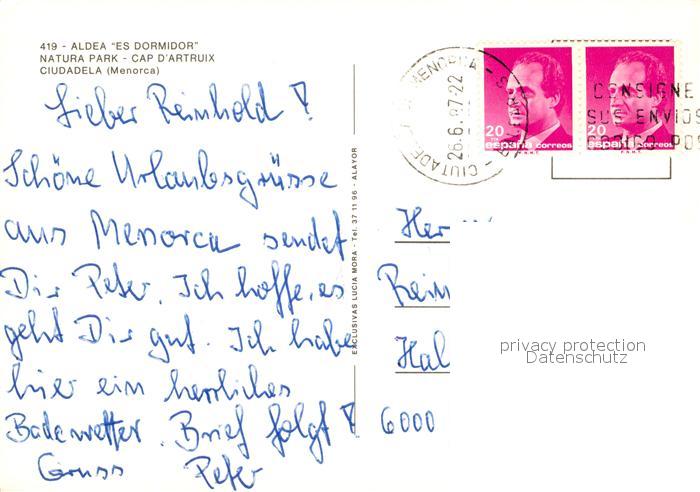 419 - ALDEA "ES DORMIDOR"
NATURA PARK - CAP D'ARTRUIX
CIUDADELA (Menorca)
Lieber Reinhold !
Schöne Urlaubsgrüsse
aus Menorca sendet
Dir Peter. Ich hoffe, es
geht Dir gut. Ich habe
hier ein herrliches
Badewetter. Brief folgt !
Gruss Peter
EXCLUSIVAS LUCIA MORA - Tel. 37 11 96 - ALAYOR
MENORCA
26.6.87-22
CIUTADE
20
españa correos
20
españa correos
CONSIGNE
SUS ENVIOS
CODIGO POS
Her
Rein
Hal
6000
privacy protection
Datenschutz